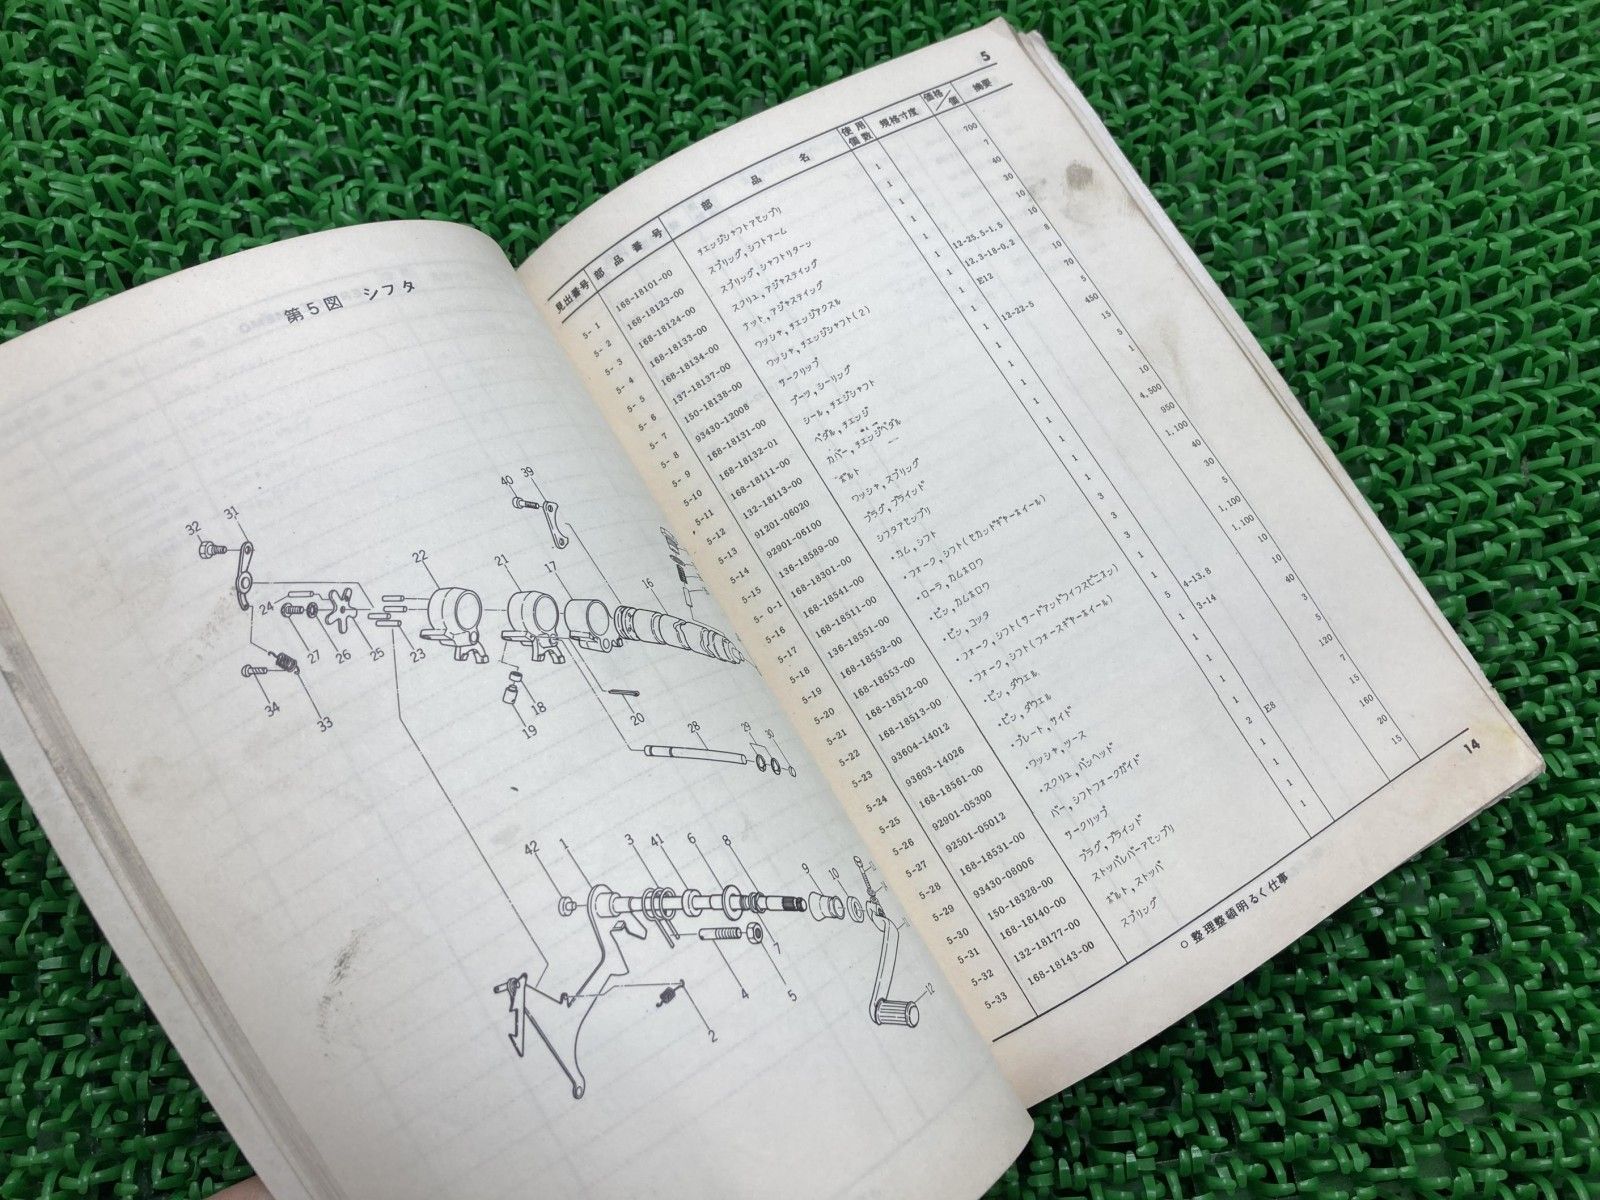 第5図 シフタ
40 39
32 31
22 21 17 16
24 27 26 25 23
18 19 20
34 33
28 29 30
42 1 3 41 6 8 9 10
7
4 5 2 12
5
見出番号 部品番号 部品名 使用個数 規格寸度 価格/価 摘要
5- 1 168-18101-00 チエンジシャフトアセンブリ 1 700
5- 2 168-18123-00 スプリング,シフトアーム 1 7
5- 3 168-18124-00 スプリング,シャフトリターン 1 40
5- 4 168-18133-00 スクリュ,アジャスティング 1 30
5- 5 168-18134-00 ナット,アジャスティング 1 10
5- 6 137-18137-00 ワッシャ,チエンジアクスル 1 12-25.5-1.5 10
5- 7 150-18138-00 ワッシャ,チエンジシャフト(2) 1 12.3-18-0.2 8
5- 8 93430-12008 サークリップ 1 E12 10
5- 9 168-18131-00 ブーツ,シーリング 1 70
5-10 168-18132-01 シール,チエンジシャフト 1 12-22-5 5
5-11 168-18111-00 ペダル,チエンジ 1 450
5-12 132-18113-00 カバー,チエンジペダル 1 15
5-13 91201-06020 ボルト 1 5
5-14 92901-06100 ワッシャ,スプリング 1 1
5-15 136-18589-00 プラグ,ブラインド 1 10
5- 0-1 168-18301-00 シフタアセンブリ 1 4,500
5-16 168-18541-00 ・カム,シフト 1 950
5-17 168-18511-00 ・フォーク,シフト(セカンドギヤーホイール) 1 1,100
5-18 136-18551-00 ・ローラ,カムホロワ 3 40
5-19 168-18552-00 ・ピン,カムホロワ 3 30
5-20 168-18553-00 ・ピン,コッタ 3 5
5-21 168-18512-00 ・フォーク,シフト(サードアンドフイフスピニオン) 1 1,100
5-22 168-18513-00 ・フォーク,シフト(フォースギヤーホイール) 1 1,100
5-23 93604-14012 ・ピン,ダウエル 5 4-13.8 10
5-24 93603-14026 ・ピン,ダウエル 1 3-14 10
5-25 168-18561-00 ・プレート,サイド 1 40
5-26 92901-05300 ・ワッシャ,ツース 1 3
5-27 92501-05012 ・スクリュ,パンヘッド 1 5
5-28 168-18531-00 バー,シフトフォークガイド 1 120
5-29 93430-08006 サークリップ 2 E8 7
5-30 150-18328-00 プラグ,ブラインド 1 15
5-31 168-18140-00 ストッパレバーアセンブリ 1 160
5-32 132-18177-00 ボルト,ストッパ 1 20
5-33 168-18143-00 スプリング 1 15
○ 整理整頓明るく仕事
14